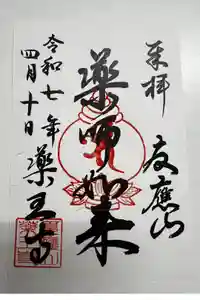 奉拝
友應山
薬師如来
令和七年
四月十日
薬王寺